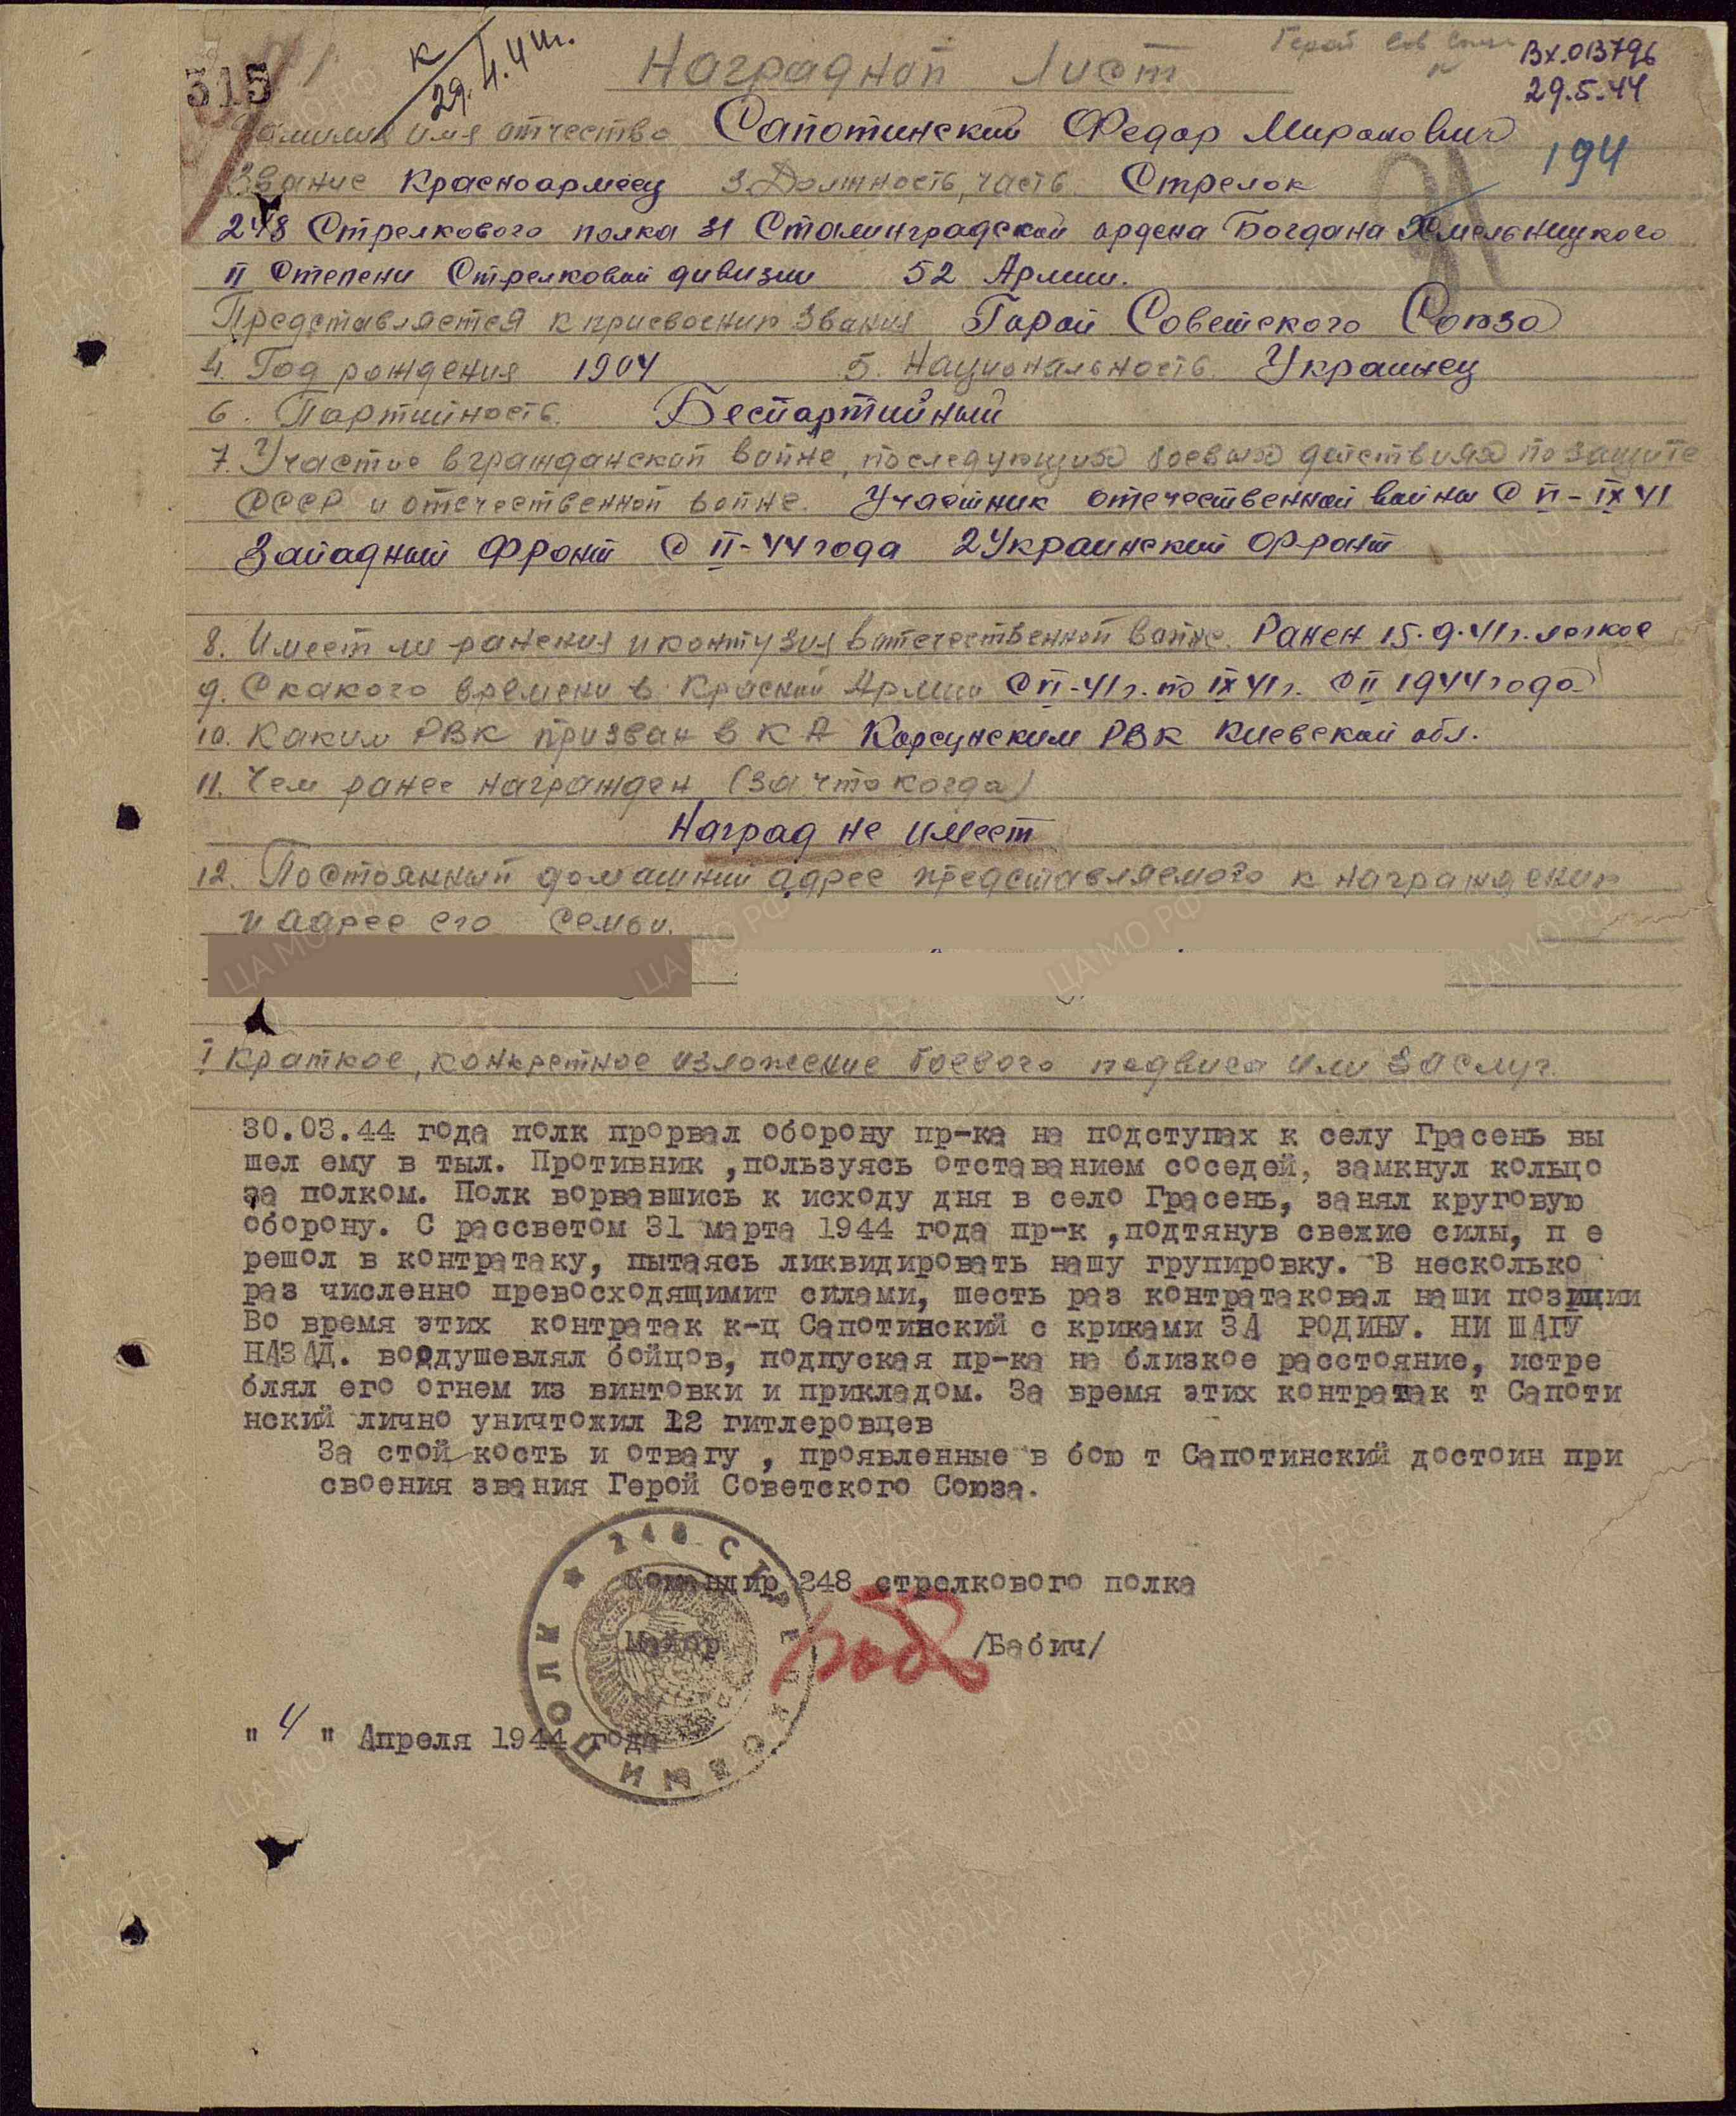 315
К
29.4.44г.
Герой Сов Союза
Вх.013796
29.5.44
194
Наградной Лист
Фамилия имя отчество Сапотинский Федор Миронович
Звание Красноармеец 3. Должность, часть Стрелок
248 Стрелкового полка 31 Сталинградской ордена Богдана Хмельницкого
II Степени Стрелковой дивизии 52 Армии.
Представляется к присвоению Звания Герой Советского Союза
4. Год рождения 1904 5. Национальность Украинец
6. Партийность. Беспартийный
7. Участие в гражданской войне, последующих боевых действиях по защите
СССР и отечественной войне. Участник отечественной войны с VI-IX 41
Западный Фронт с II-44 года 2 Украинский фронт
8. Имеет ли ранения и контузия в отечественной войне. Ранен 15.9.41г. легкое
9. С какого времени в Красной Армии с VI-41г. по IX 41г. с II 1944 года
10. Каким РВК призван в КА Корсунским РВК Киевской обл.
11. Чем ранее награжден (за что когда)
Наград не имеет
12. Постоянный домашний адрес представляемого к награждению
и адрес его семьи.
I Краткое, конкретное изложение боевого подвига или заслуг.
30.03.44 года полк прорвал оборону пр-ка на подступах к селу Грасень вы
шел ему в тыл. Противник ,пользуясь отставанием соседей, замкнул кольцо
за полком. Полк ворвавшись к исходу дня в село Грасень, занял круговую
оборону. С рассветом 31 марта 1944 года пр-к ,подтянув свежие силы, п е
решол в контратаку, пытаясь ликвидировать нашу групировку. В несколько
раз численно превосходящимит силами, шесть раз контратаковал наши позиции
Во время этих контратак к-ц Сапотинский с криками ЗА РОДИНУ. НИ ШАГУ
НАЗАД. воодушевлял бойцов, подпуская пр-ка на близкое расстояние, истре
блял его огнем из винтовки и прикладом. За время этих контратак т Сапоти
нский лично уничтожил 12 гитлеровцев
За стой кость и отвагу , проявленные в бою т Сапотинский достоин при
своения звания Герой Советского Союза.
Командир 248 стрелкового полка
Майор /Бабич/
" 4 " Апреля 1944 года
248 СТРЕЛКОВЫЙ ПОЛК
ПАМЯТЬ НАРОДА
ЦА МО РФ